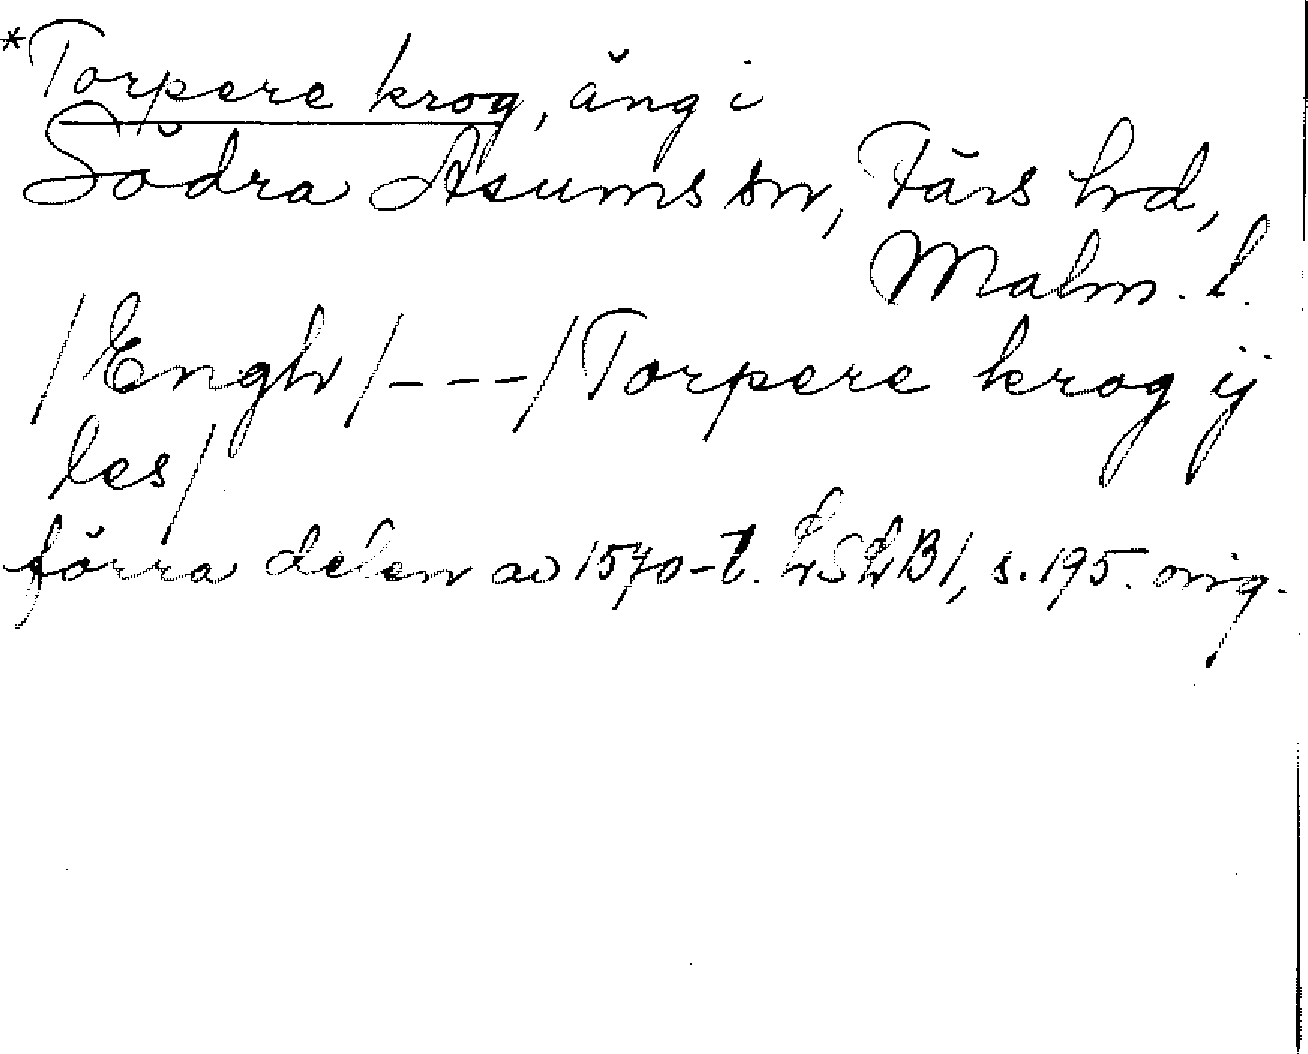 *Torpere krog, äng i
Södra Åsums sn, Färs hd,
Malm. l.
/Engh/---/Torpere krog ij
les/
förra delen av 1570-t. LSLB1, s. 195. orig.